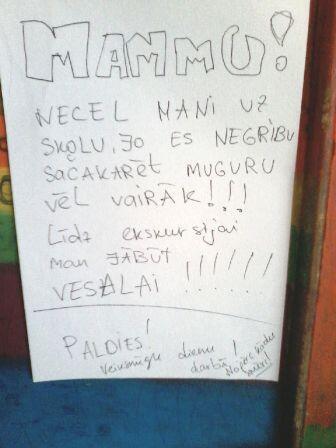 MAMMU!
NECEL MANI UZ
SKOLU, JO ES NEGRIBU
SAČAKARĒT MUGURU
VĒL VAIRĀK!!!
Līdz ekskursijai
MAN JĀBŪT
VESALAI !!!!!!
PALDIES!
Veiksmīgu dienu
darbā!